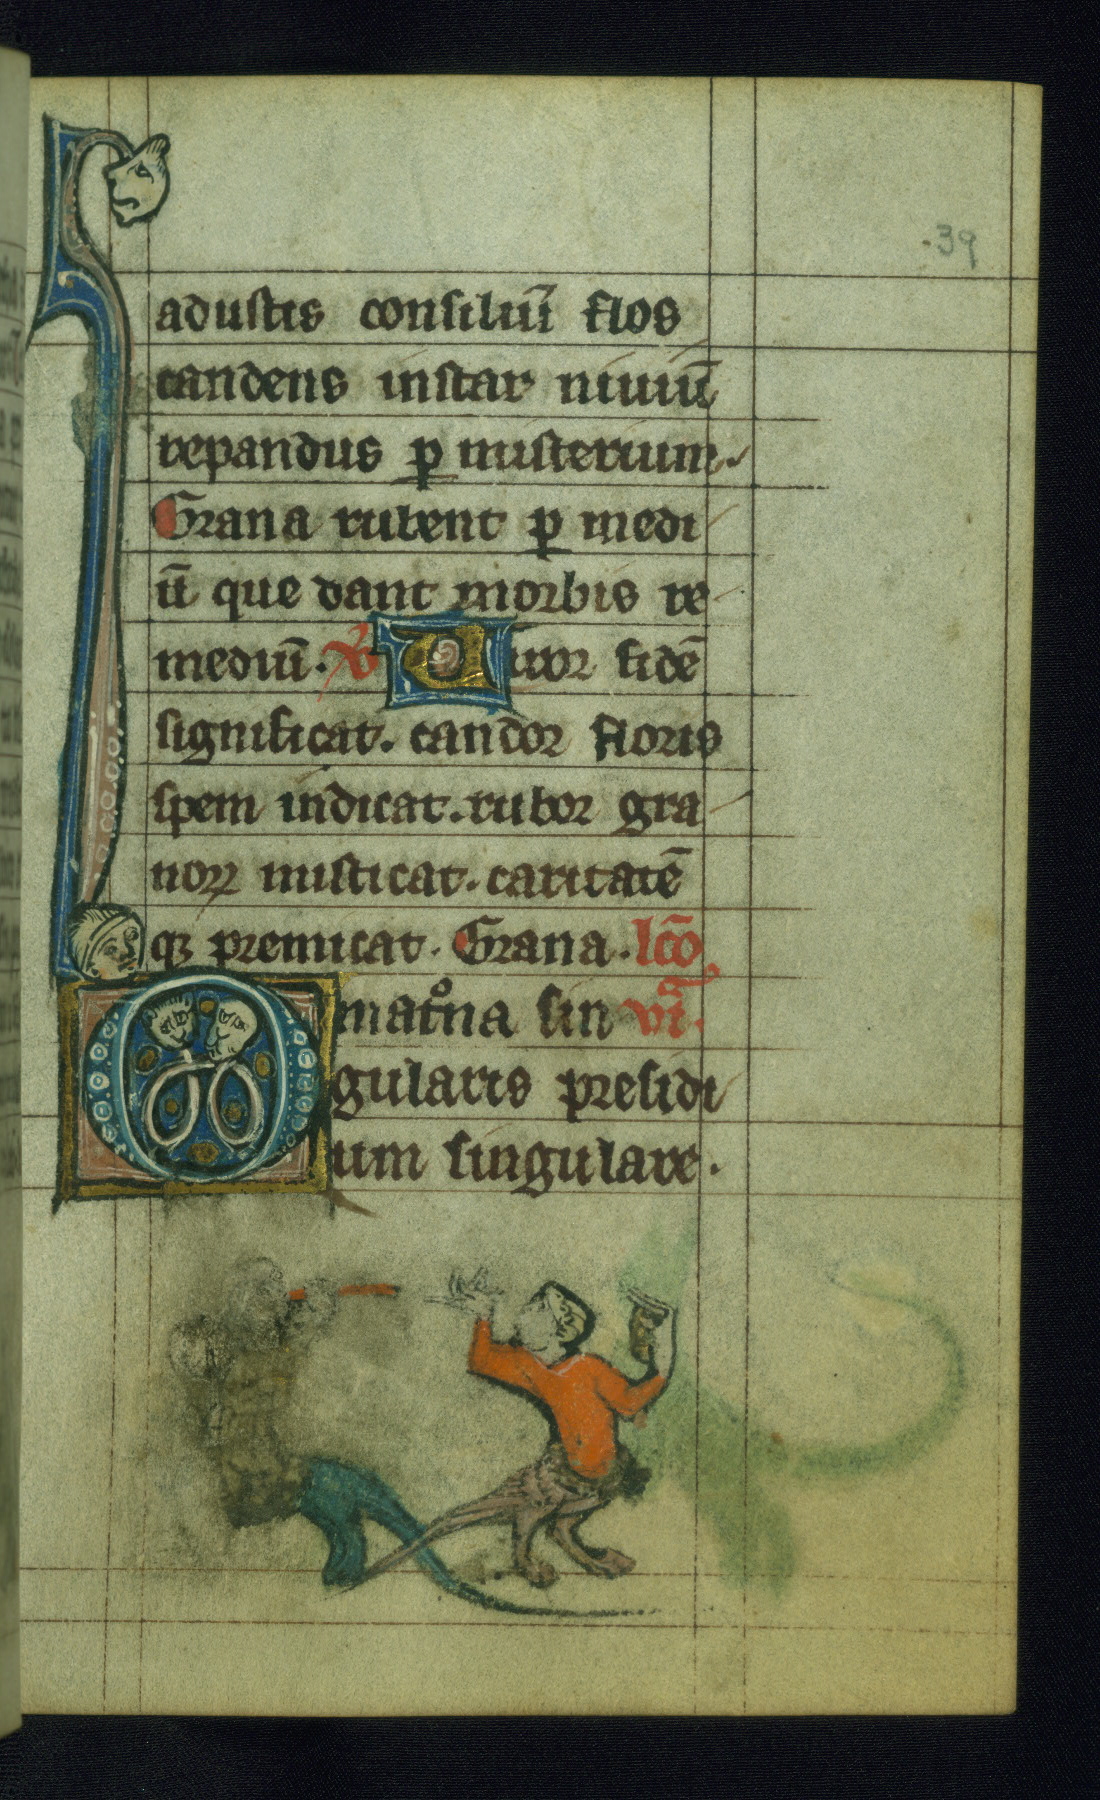 39
adustis consiliū flos
candens instar niuiū
repandus p̱ misterium.
Grana rubent p̱ medi
ū que dant morbis re
mediū. V̓ Viror fidē
significat. candor floris
spem indicat. rubor gra
noꝝ misticat. caritatē
qꝫ premicat. Grana. lc̄o
O matrͦna sin vi.
gularis presidi
um singulare.